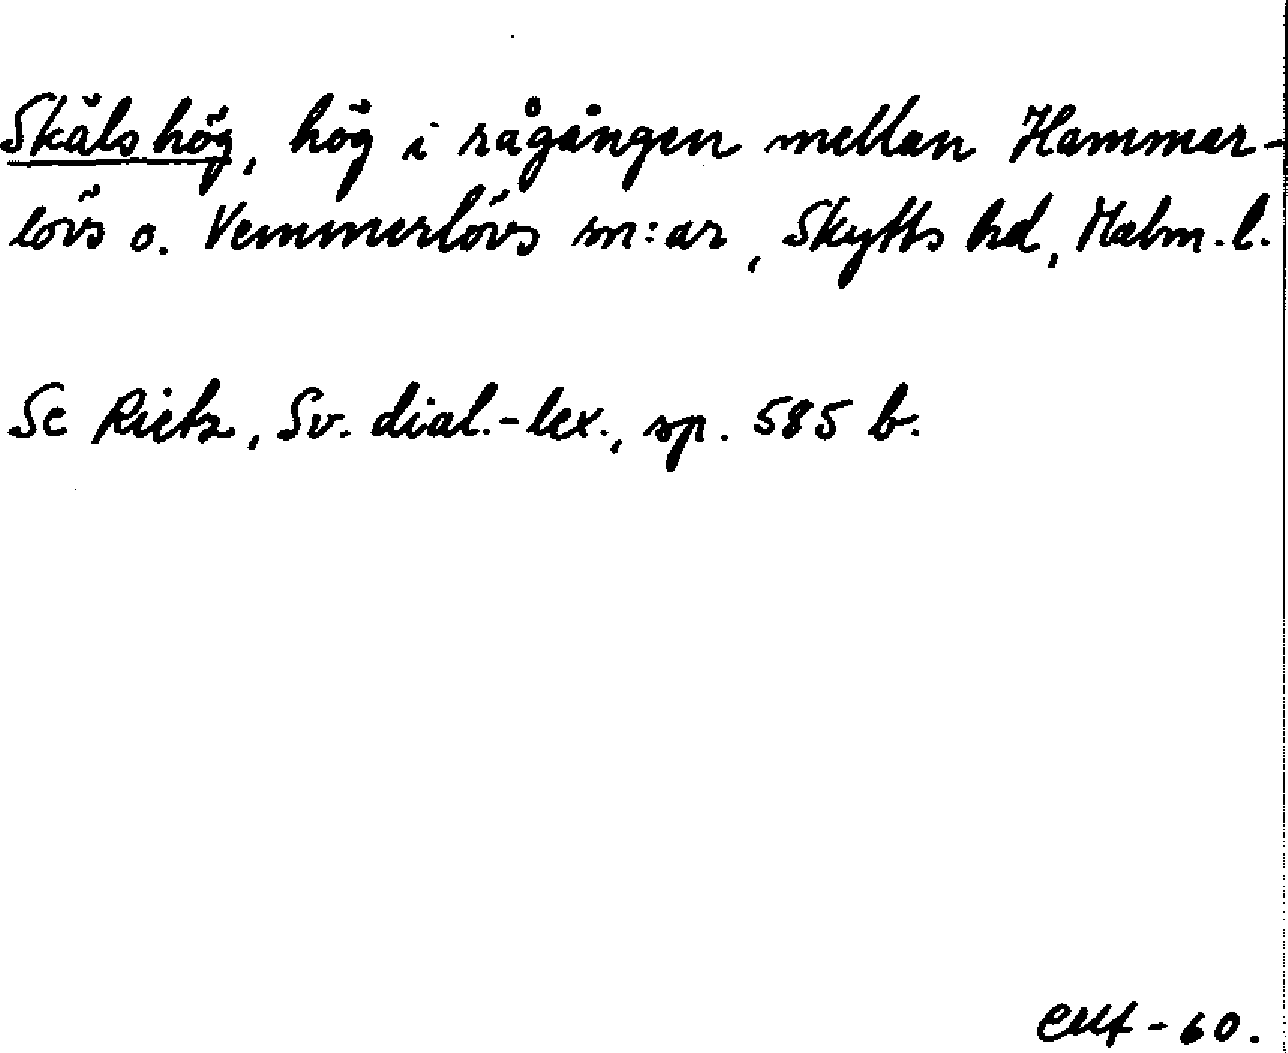 Skäls hög, hög i rågången mellan Hammar-
lövs o. Vemmerlövs sn:ar, Skytts hd, Malm. l.
Se Rietz, Sv. dial.-lex., sp. 585 b.
-60.